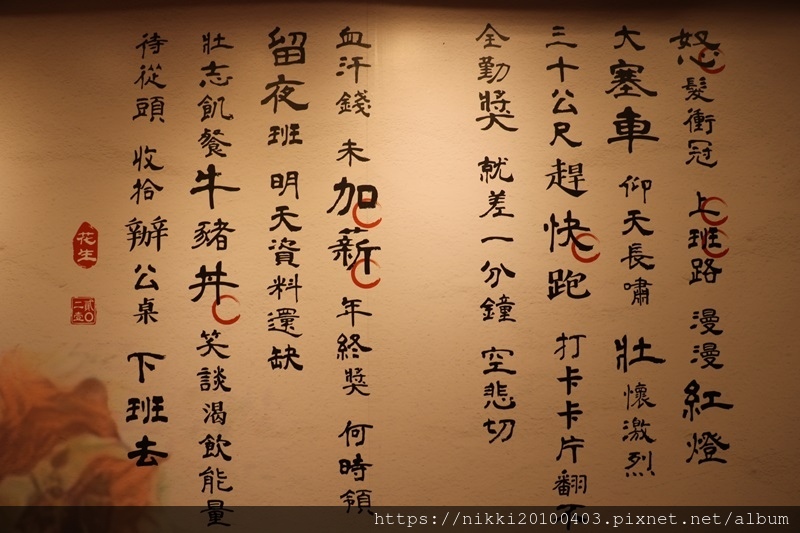 怒髮衝冠 上班路 漫漫紅燈
大塞車 仰天長嘯 壯懷激烈
三十公尺趕快跑 打卡卡片翻
全勤獎 就差一分鐘 空悲切
血汗錢 未加薪 年終獎 何時領
留夜班 明天資料還缺
壯志飢餐牛豬丼 笑談渴飲能量
待從頭 收拾辦公桌 下班去
花生
貳〇
二壹
https://nikki20100403.pixnet.net/album